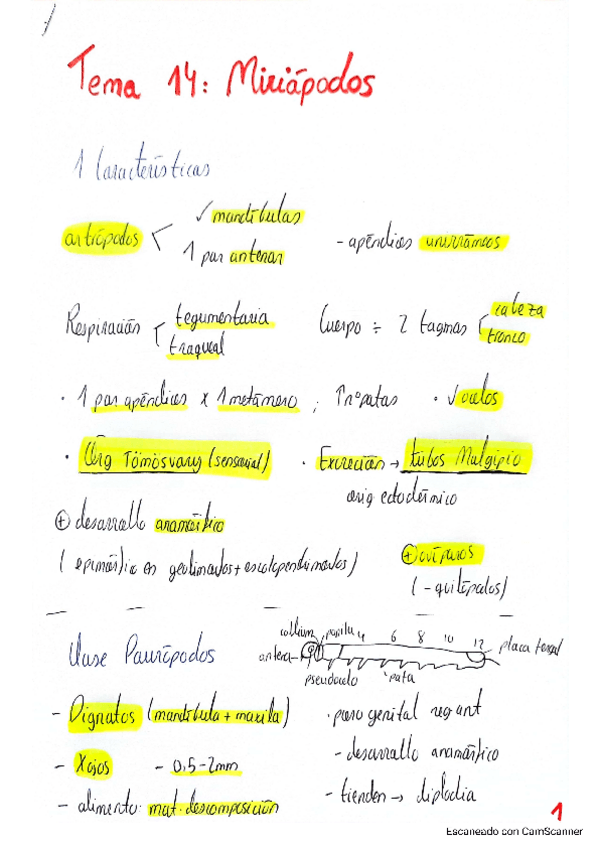 Tema 14: Miriápodos
1 Características
artrópodos < ✓ mandíbulas
1 par antenas
- apéndices unirrámeos
Respiración { tegumentaria
traqueal
Cuerpo ÷ 2 tagmas { cabeza
tronco
· 1 par apéndices x 1 metámero ; ↑nº patas · ✓ ocelos
· Órg Tömösvary (sensorial) · Excreción → tubos Malgipio
orig ectodérmico
⊕ desarrollo anamórfico
( epimórfico en geofilomados + escolopendromados)
⊕ ovíparos
(- quilópodos)
Clase Paurópodos
collum maxila 4 6 8 10 12 placa tergal
antena
pseudoculo pata
- Dignatos (mandíbula + maxila) · poro genital reg ant
- X ojos - 0,5-2mm - desarrollo anamórfico
- alimento: mat. descomposición - tienden → diplodia
1
Escaneado con CamScanner